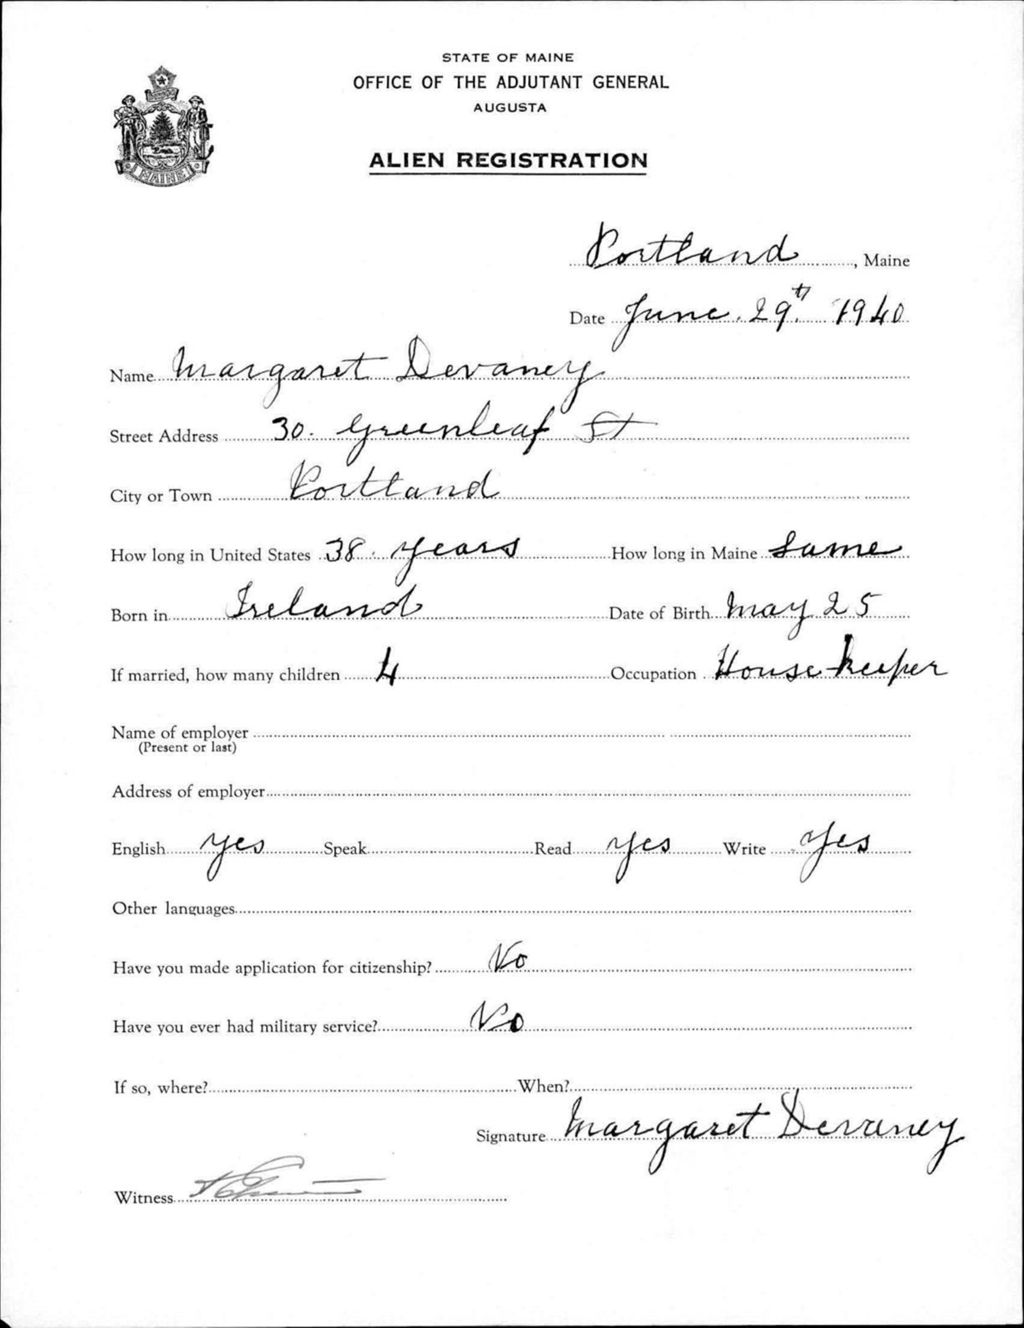 STATE OF MAINE
OFFICE OF THE ADJUTANT GENERAL
AUGUSTA
MAINE
ALIEN REGISTRATION
Portland, Maine
Date June. 29th 1940
Name Margaret Devaney
Street Address 30. Greenleaf St
City or Town Portland
How long in United States 38. years How long in Maine Same
Born in Ireland Date of Birth May 25
If married, how many children 4 Occupation House-keeper
Name of employer
(Present or last)
Address of employer
English yes Speak Read yes Write yes
Other languages
Have you made application for citizenship? No
Have you ever had military service? No
If so, where? When?
Signature Margaret Devaney
Witness